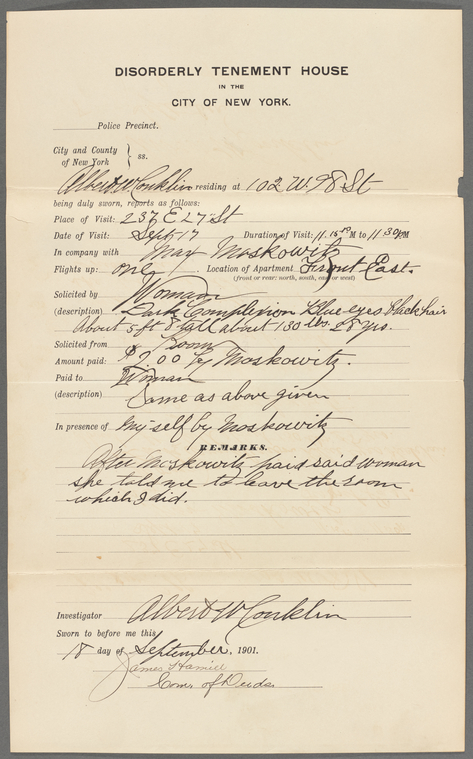 DISORDERLY TENEMENT HOUSE
IN THE
CITY OF NEW YORK.
Police Precinct.
City and County
of New York } ss.
Albert W Conklin residing at 102 W. 98 St
being duly sworn, reports as follows:
Place of Visit: 237 E 27 St
Date of Visit: Sept 17 Duration of Visit: 11.15 PM to 11.30 PM
In company with Max Moskowitz
Flights up: one Location of Apartment Front East.
(front or rear: north, south, east or west)
Solicited by Woman
(description) Dark Complexion Blue eyes black hair
About 5 ft 8 tall about 130 lbs. 28 yrs.
Solicited from Room
Amount paid: $2.00 by Moskowitz.
Paid to Woman
(description) Same as above given
In presence of My self by Moskowitz
REMARKS.
After Moskowitz paid said woman
she told me to leave the room
which I did.
Investigator Albert W Conklin
Sworn to before me this
18 day of September, 1901.
James Hamill
Com. of Deeds